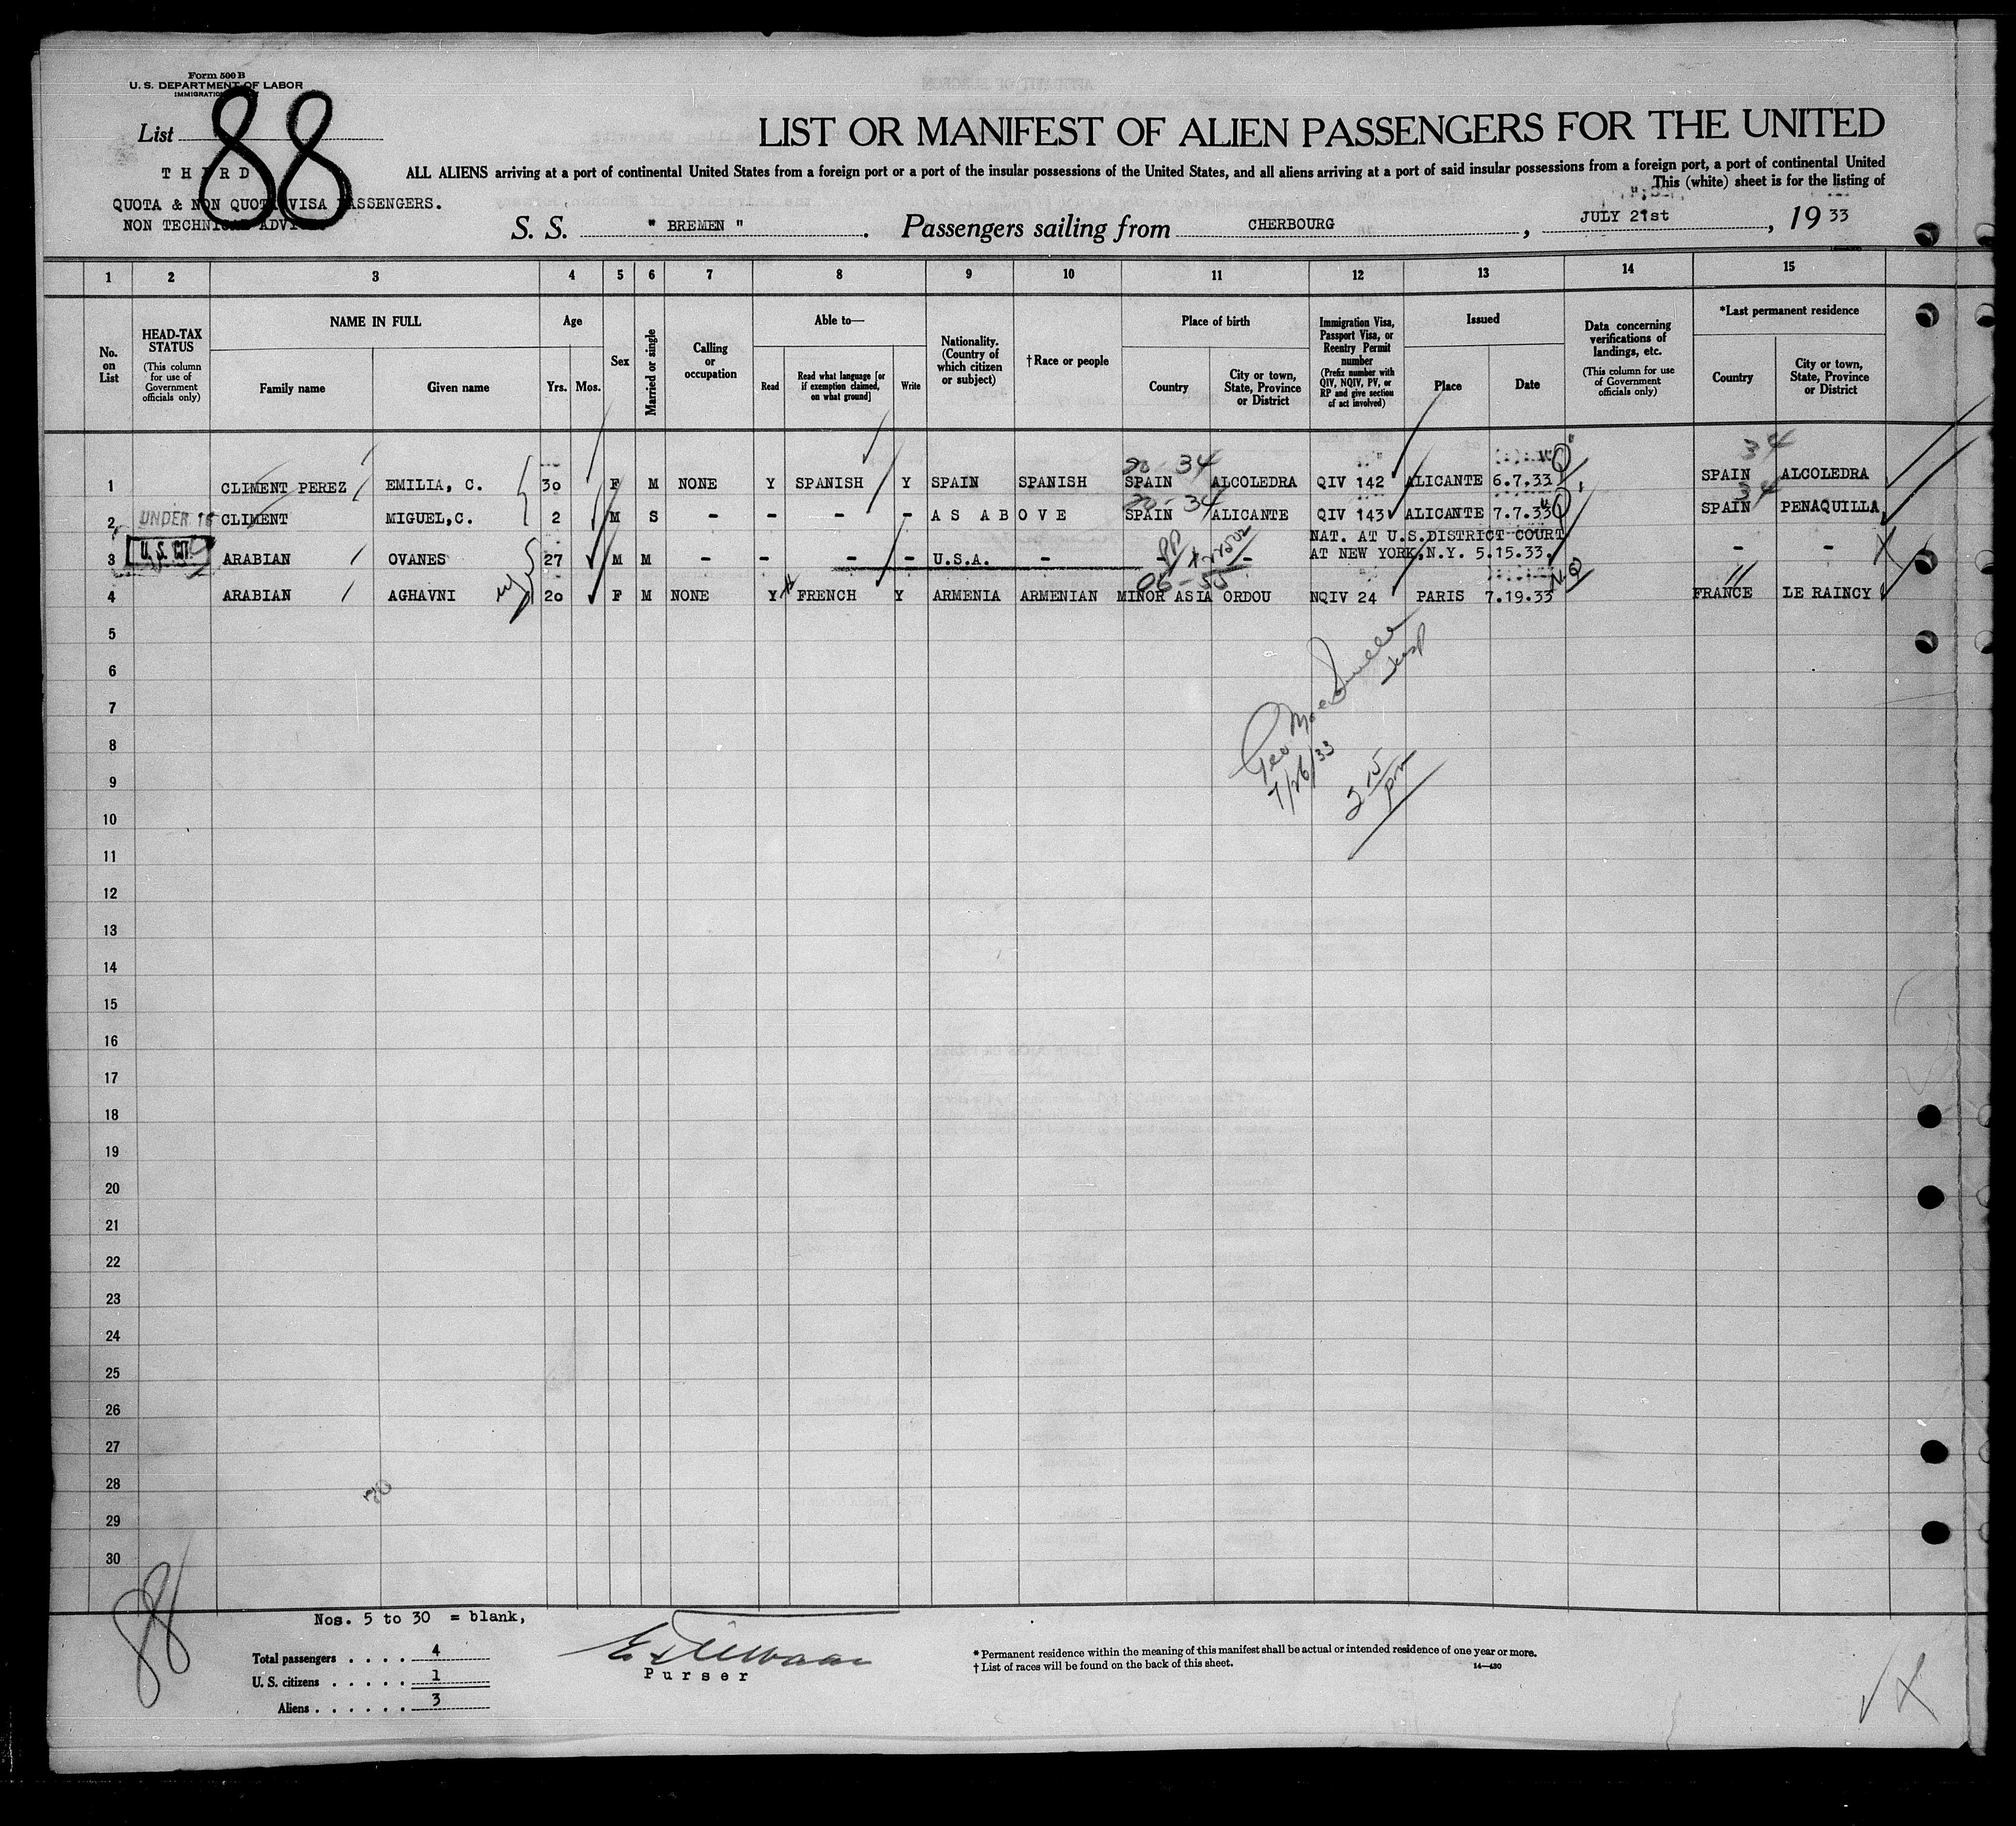 Form 500 B
U. S. DEPARTMENT OF LABOR
List 88
LIST OR MANIFEST OF ALIEN PASSENGERS FOR THE UNITED
THIRD
ALL ALIENS arriving at a port of continental United States from a foreign port or a port of the insular possessions of the United States, and all aliens arriving at a port of said insular possessions from a foreign port, a port of continental United
This (white) sheet is for the listing of
QUOTA & NON QUOTA VISA PASSENGERS.
NON TECHNICAL
S. S. " BREMEN ". Passengers sailing from CHERBOURG, JULY 21st, 19 33
1 2 3 4 5 6 7 8 9 10 11 12 13 14 15
No. on List
HEAD-TAX STATUS (This column for use of Government officials only)
NAME IN FULL
Family name
Given name
Age
Yrs. Mos.
Sex
Married or single
Calling or occupation
Able to—
Read
Read what language [or if exemption claimed, on what ground]
Write
Nationality. (Country of which citizen or subject)
†Race or people
Place of birth
Country
City or town, State, Province or District
Immigration Visa, Passport Visa, or Reentry Permit number (Prefix number with QIV, NQIV, PV, or RP and give section of act involved)
Issued
Place
Date
Data concerning verifications of landings, etc. (This column for use of Government officials only)
*Last permanent residence
Country
City or town, State, Province or District
20-34 34
1 CLIMENT PEREZ EMILIA, C. 30 F M NONE Y SPANISH Y SPAIN SPANISH SPAIN ALCOLEDRA QIV 142 ALICANTE 6.7.33 SPAIN ALCOLEDRA
34 34
2 UNDER 16 CLIMENT MIGUEL,C. 2 M S - - - - AS ABOVE SPAIN ALICANTE QIV 143 ALICANTE 7.7.33 SPAIN PENAQUILLA
NAT. AT U.S.DISTRICT COURT
3 U.S. CIT. ARABIAN OVANES 27 M M - - - - U.S.A. - - - AT NEW YORK,N.Y. 5.15.33. - -
4 ARABIAN AGHAVNI 20 F M NONE Y FRENCH Y ARMENIA ARMENIAN MINOR ASIA ORDOU NQIV 24 PARIS 7.19.33 NQ FRANCE LE RAINCY
5
6
7
7/26/33
2 15 pm
8
9
10
11
12
13
14
15
16
17
18
19
20
21
22
23
24
25
26
27
28
29
30
88
Nos. 5 to 30 = blank,
Total passengers . . . . 4
U. S. citizens . . . . . 1
Aliens . . . . . . 3
Purser
* Permanent residence within the meaning of this manifest shall be actual or intended residence of one year or more.
† List of races will be found on the back of this sheet.
14—430